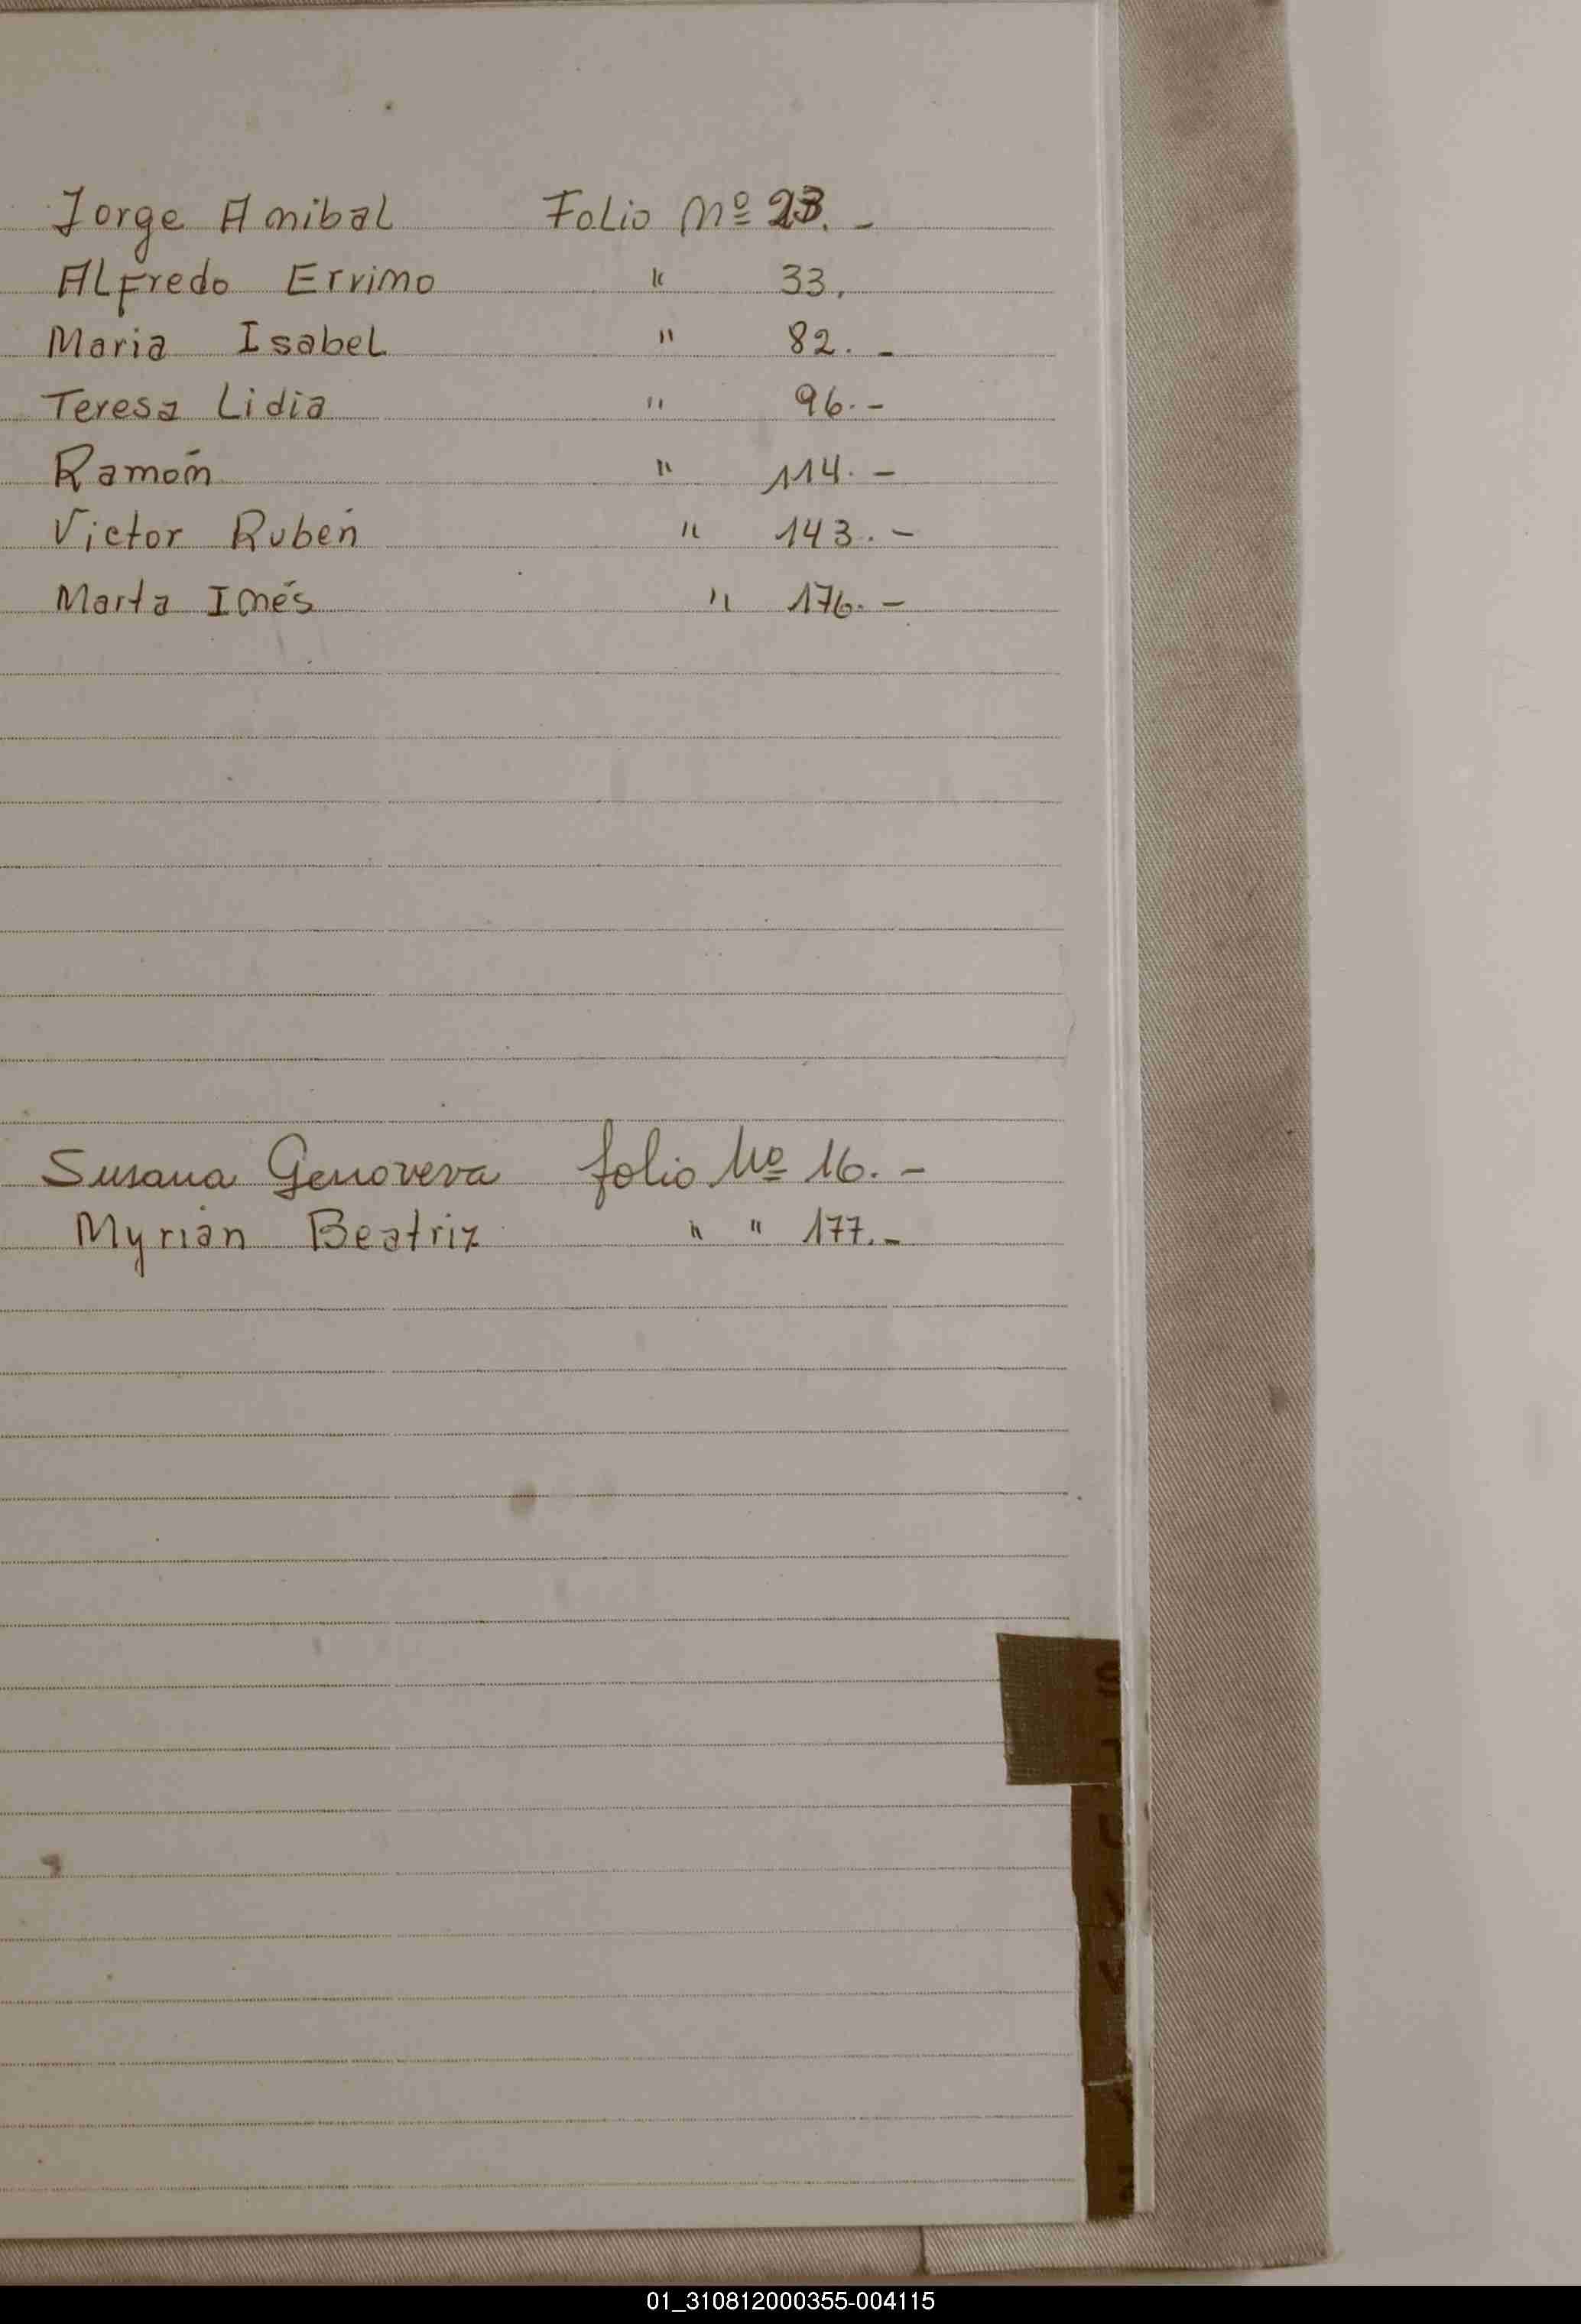 Jorge Anibal Folio Nº 23.-
Alfredo Ervino " 33.
Maria Isabel " 82.-
Teresa Lidia " 96.-
Ramón " 114.-
Victor Rubén " 143.-
Marta Inés " 176.-
Susana Genoveva folio Nº 16.-
Myrian Beatriz " " 177.-
01_310812000355-004115